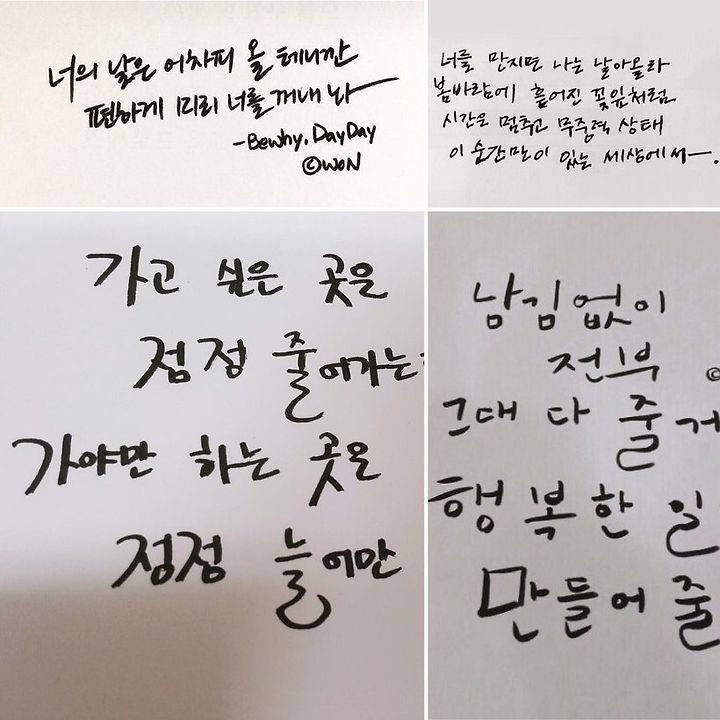 너의 날은 어차피 올 테니깐
편하게 미리 너를 꺼내 놔
-Bewhy, DayDay
©WON
너를 만지면 나는 날아올라
봄바람에 흩어진 꽃잎처럼
시간은 멈추고 무중력 상태
이 순간만이 있는 세상에서
가고 싶은 곳은
점점 줄어가는
가야만 하는 곳은
점점 늘어만
남김없이
전부
©
그대 다 줄거
행복한 일
만들어 줄